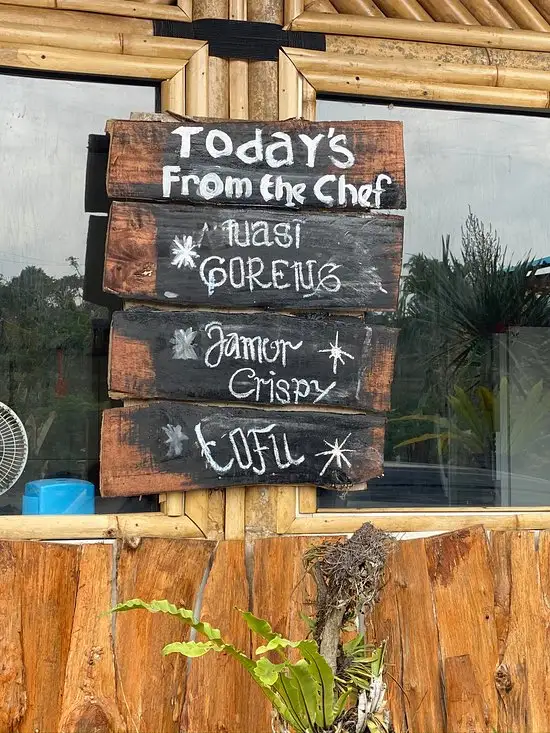 Today's
From the Chef
Nasi
GORENG
Jamur
Crispy
tOFU